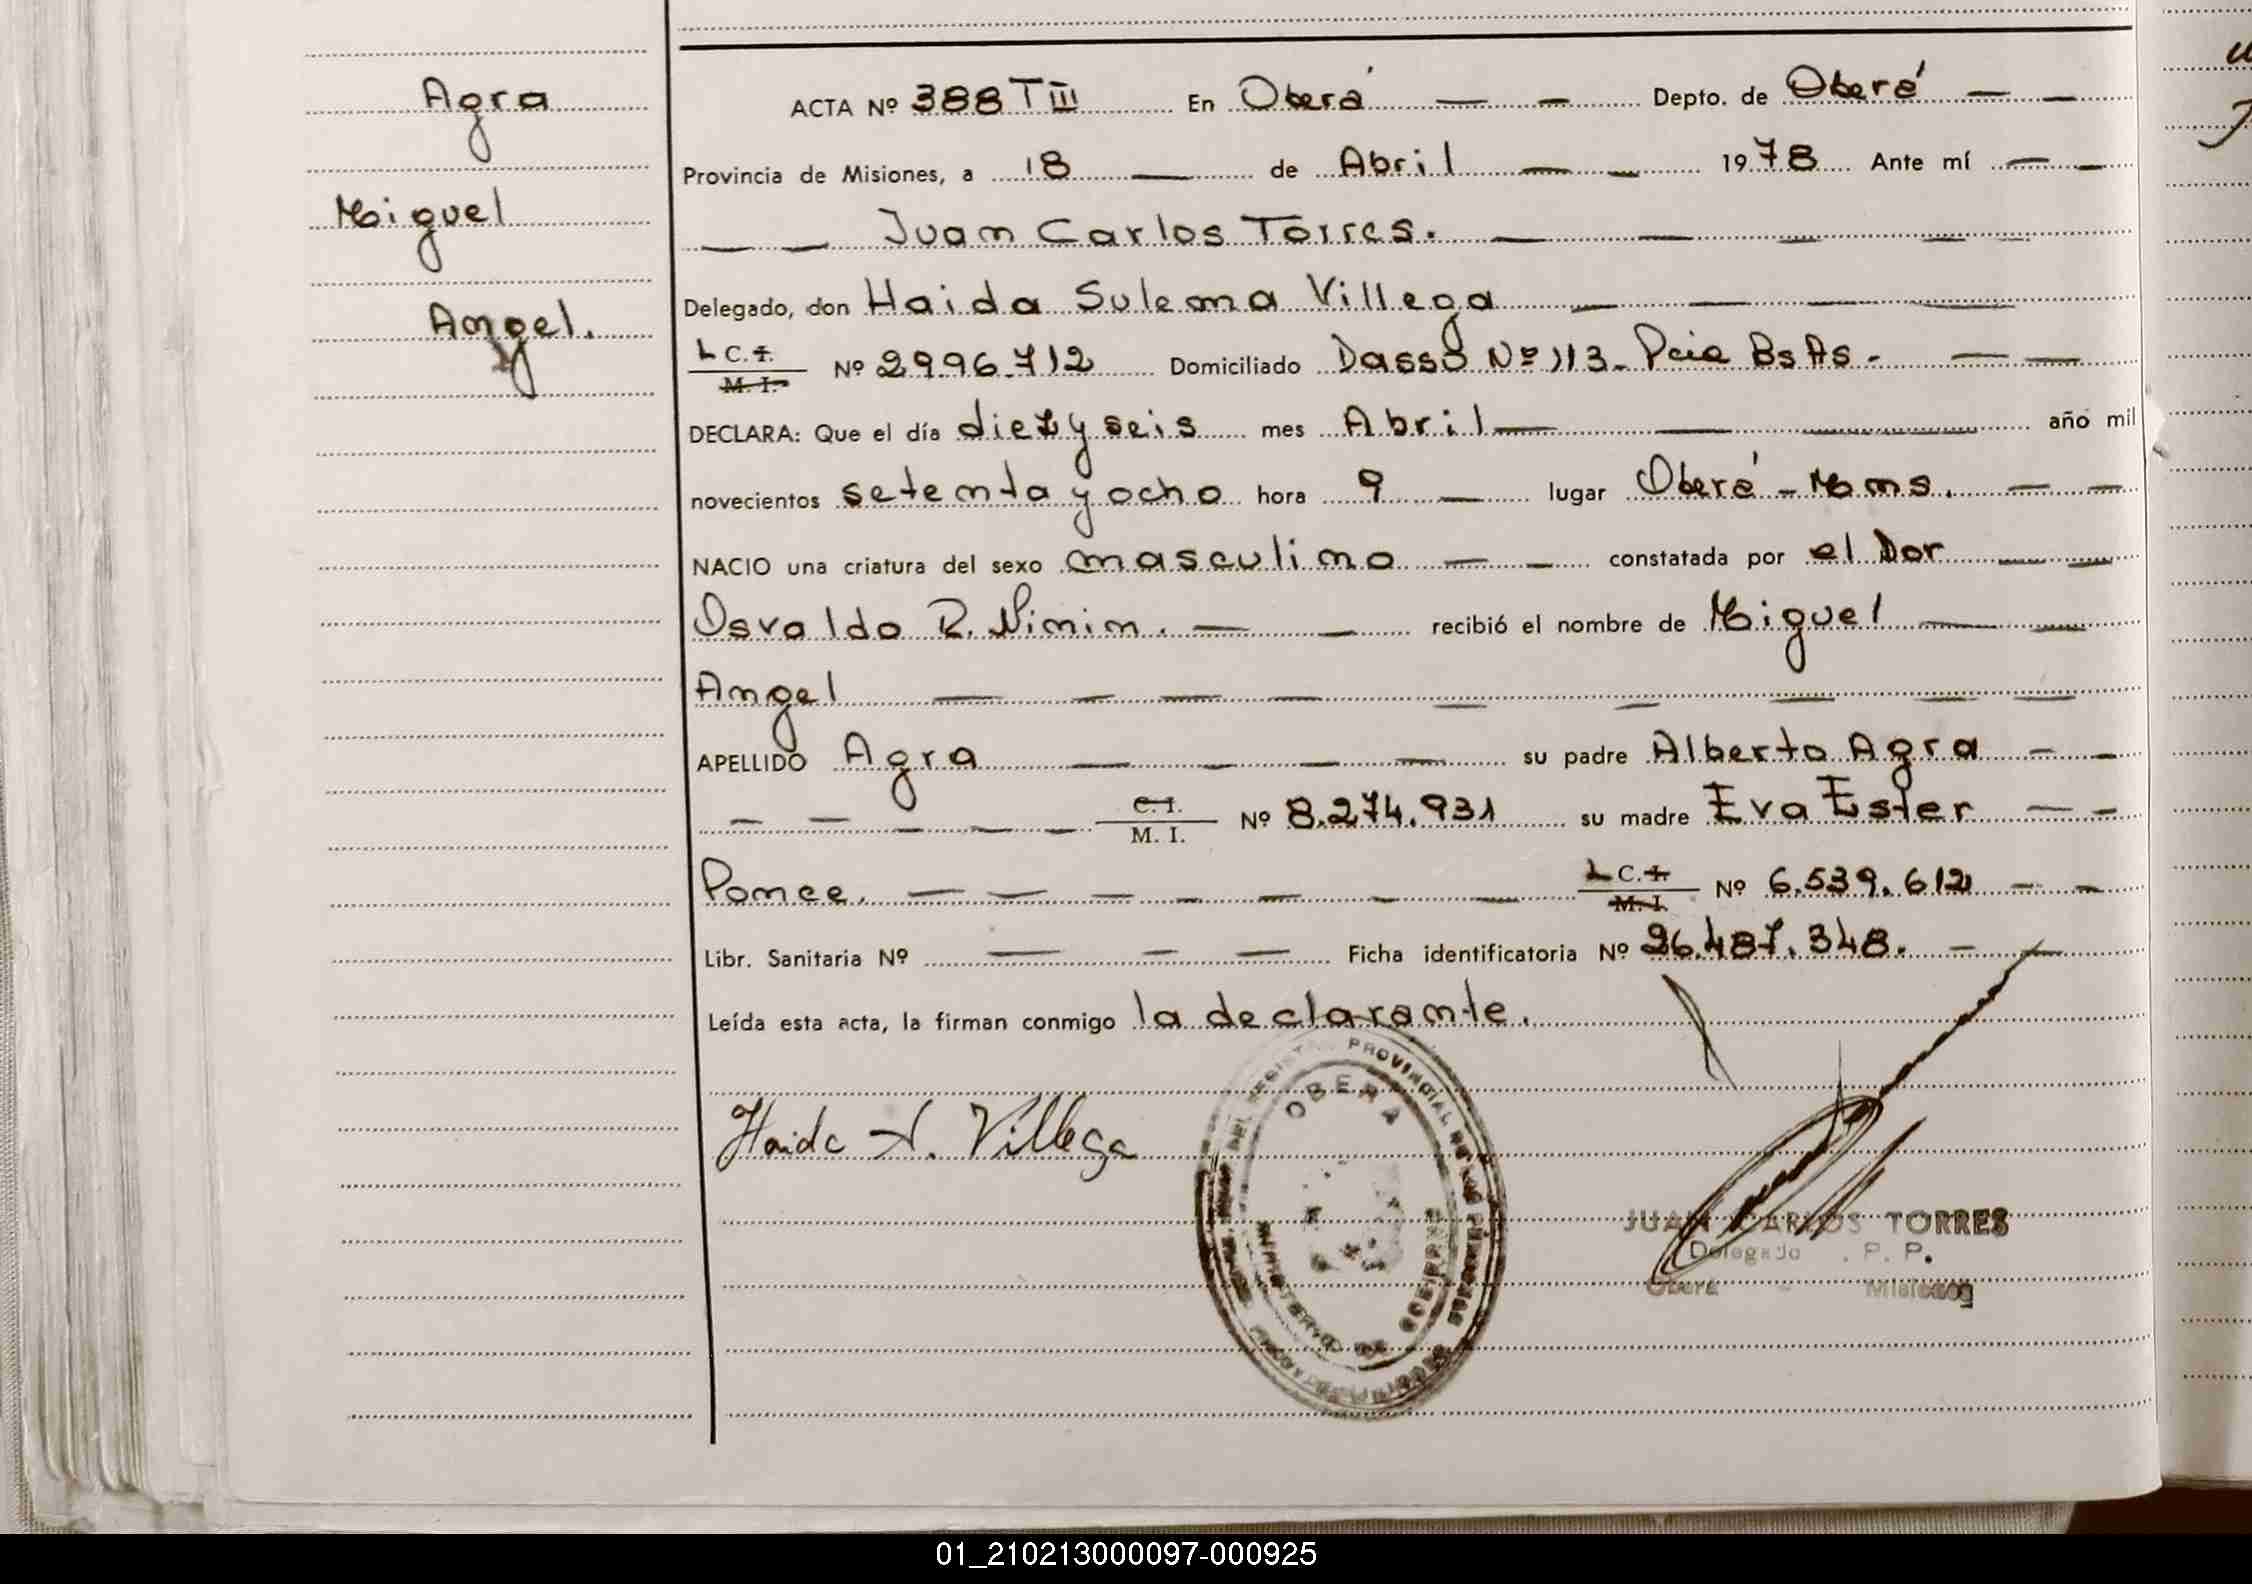 Agra
Miguel
Angel.
ACTA Nº 388 T III En Oberá Depto. de Oberá
Provincia de Misiones, a 18 de Abril 1978 Ante mí
Juan Carlos Torres.
Delegado, don Haida Sulema Villega
L C. I. M. I. Nº 2.996.712 Domiciliado Dasso Nº 113 - Pcia Bs As.
DECLARA: Que el día diez y seis mes Abril año mil
novecientos setenta y ocho hora 9 lugar Oberá - Mnes.
NACIO una criatura del sexo masculino constatada por el Dor
Osvaldo R. Nimin. recibió el nombre de Miguel
Angel
APELLIDO Agra su padre Alberto Agra
C. I. M. I. Nº 8.274.931 su madre Eva Ester
Ponce. L C. I. M. I. Nº 6.539.612
Libr. Sanitaria Nº Ficha identificatoria Nº 26.487.348.
Leída esta acta, la firman conmigo la declarante.
Haida S. Villega
PROVINCIAL DE LAS PERSONAS
OBERA
MINISTERIO DE GOBIERNO
JUAN CARLOS TORRES
Delegado P. P.
Oberá - Misiones
01_210213000097-000925